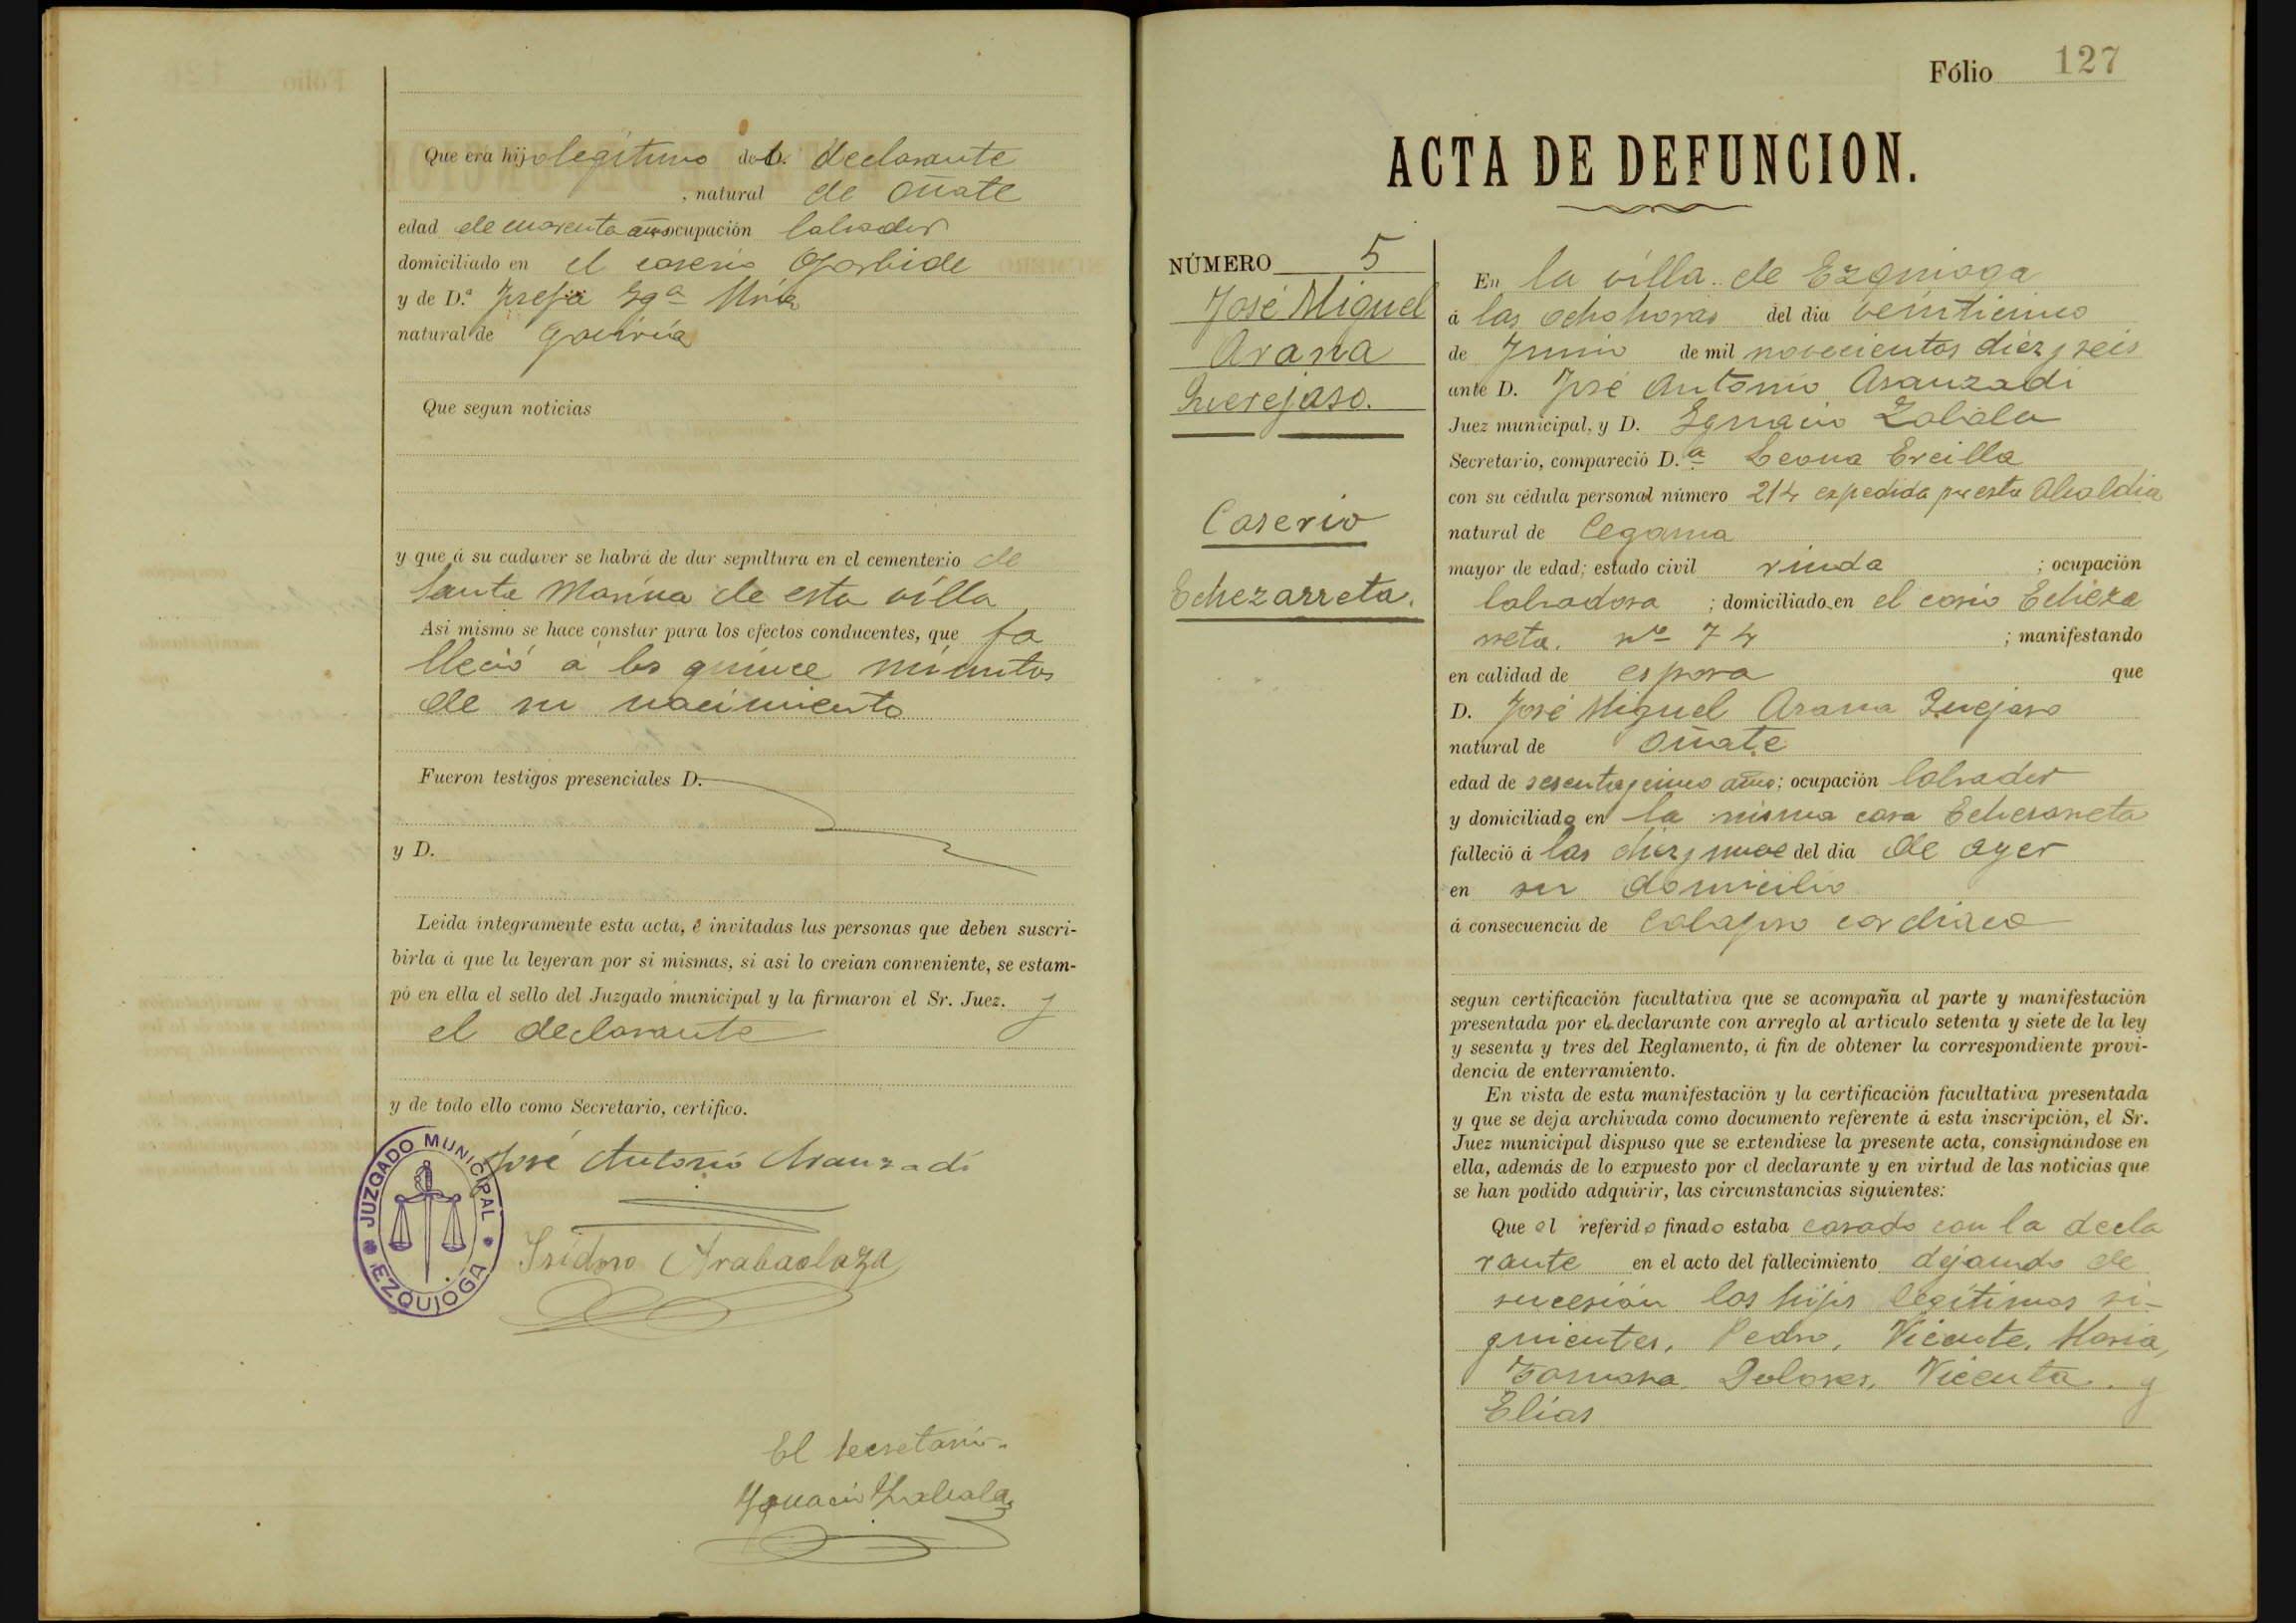 Que era hijo legítimo de D. declarante
, natural de Oñate
edad de cuarenta años ocupación labrador
domiciliado en el caserío Ojarbide
y de D.ª Josefa Ig.ª
natural de Gaviria
Que segun noticias
y que á su cadaver se habrá de dar sepultura en el cementerio de
Santa Marina de esta villa
Asi mismo se hace constar para los efectos conducentes, que fa
lleció á los quince minutos
de su nacimiento
Fueron testigos presenciales D.
y D.
Leida íntegramente esta acta, é invitadas las personas que deben suscri-
birla á que la leyeran por si mismas, si asi lo creian conveniente, se estam-
pó en ella el sello del Juzgado municipal y la firmaron el Sr. Juez. y
el declarante
y de todo ello como Secretario, certifico.
JUZGADO MUNICIPAL
EZQUIOGA
José Antonio Aranzadi
Isidoro Arabaolaza
El Secretario.
Ignacio Zabala
Fólio 127
ACTA DE DEFUNCION.
NÚMERO 5
José Miguel
Arana
Querejaso.
Caserio
Echezarreta.
En la villa de Ezquioga
á las ocho horas del dia veinticinco
de Junio de mil novecientos diez y seis
ante D. José Antonio Aranzadi
Juez municipal, y D. Ignacio Zabala
Secretario, compareció D.ª Leona Ercilla
con su cédula personal número 214 expedida por esta Alcaldia
natural de Cegama
mayor de edad; estado civil viuda ; ocupación
labradora ; domiciliado en el cario Echeza
rreta. nº 74 ; manifestando
en calidad de esposa que
D. José Miguel Arana Quejaso
natural de Oñate
edad de sesenta y cinco años; ocupación labrador
y domiciliado en la misma casa Echezarreta
falleció á las diez y nueve del dia de ayer
en su domicilio
á consecuencia de Colapso cardiaco
segun certificación facultativa que se acompaña al parte y manifestación
presentada por el declarante con arreglo al articulo setenta y siete de la ley
y sesenta y tres del Reglamento, á fin de obtener la correspondiente provi-
dencia de enterramiento.
En vista de esta manifestación y la certificación facultativa presentada
y que se deja archivada como documento referente á esta inscripción, el Sr.
Juez municipal dispuso que se extendiese la presente acta, consignándose en
ella, además de lo expuesto por el declarante y en virtud de las noticias que
se han podido adquirir, las circunstancias siguientes:
Que el referido finado estaba casado con la decla
rante en el acto del fallecimiento dejando de
sucesión los hijos legítimos si-
guientes, Pedro, Vicente, Maria,
Tomasa, Dolores, Vicenta y
Elías